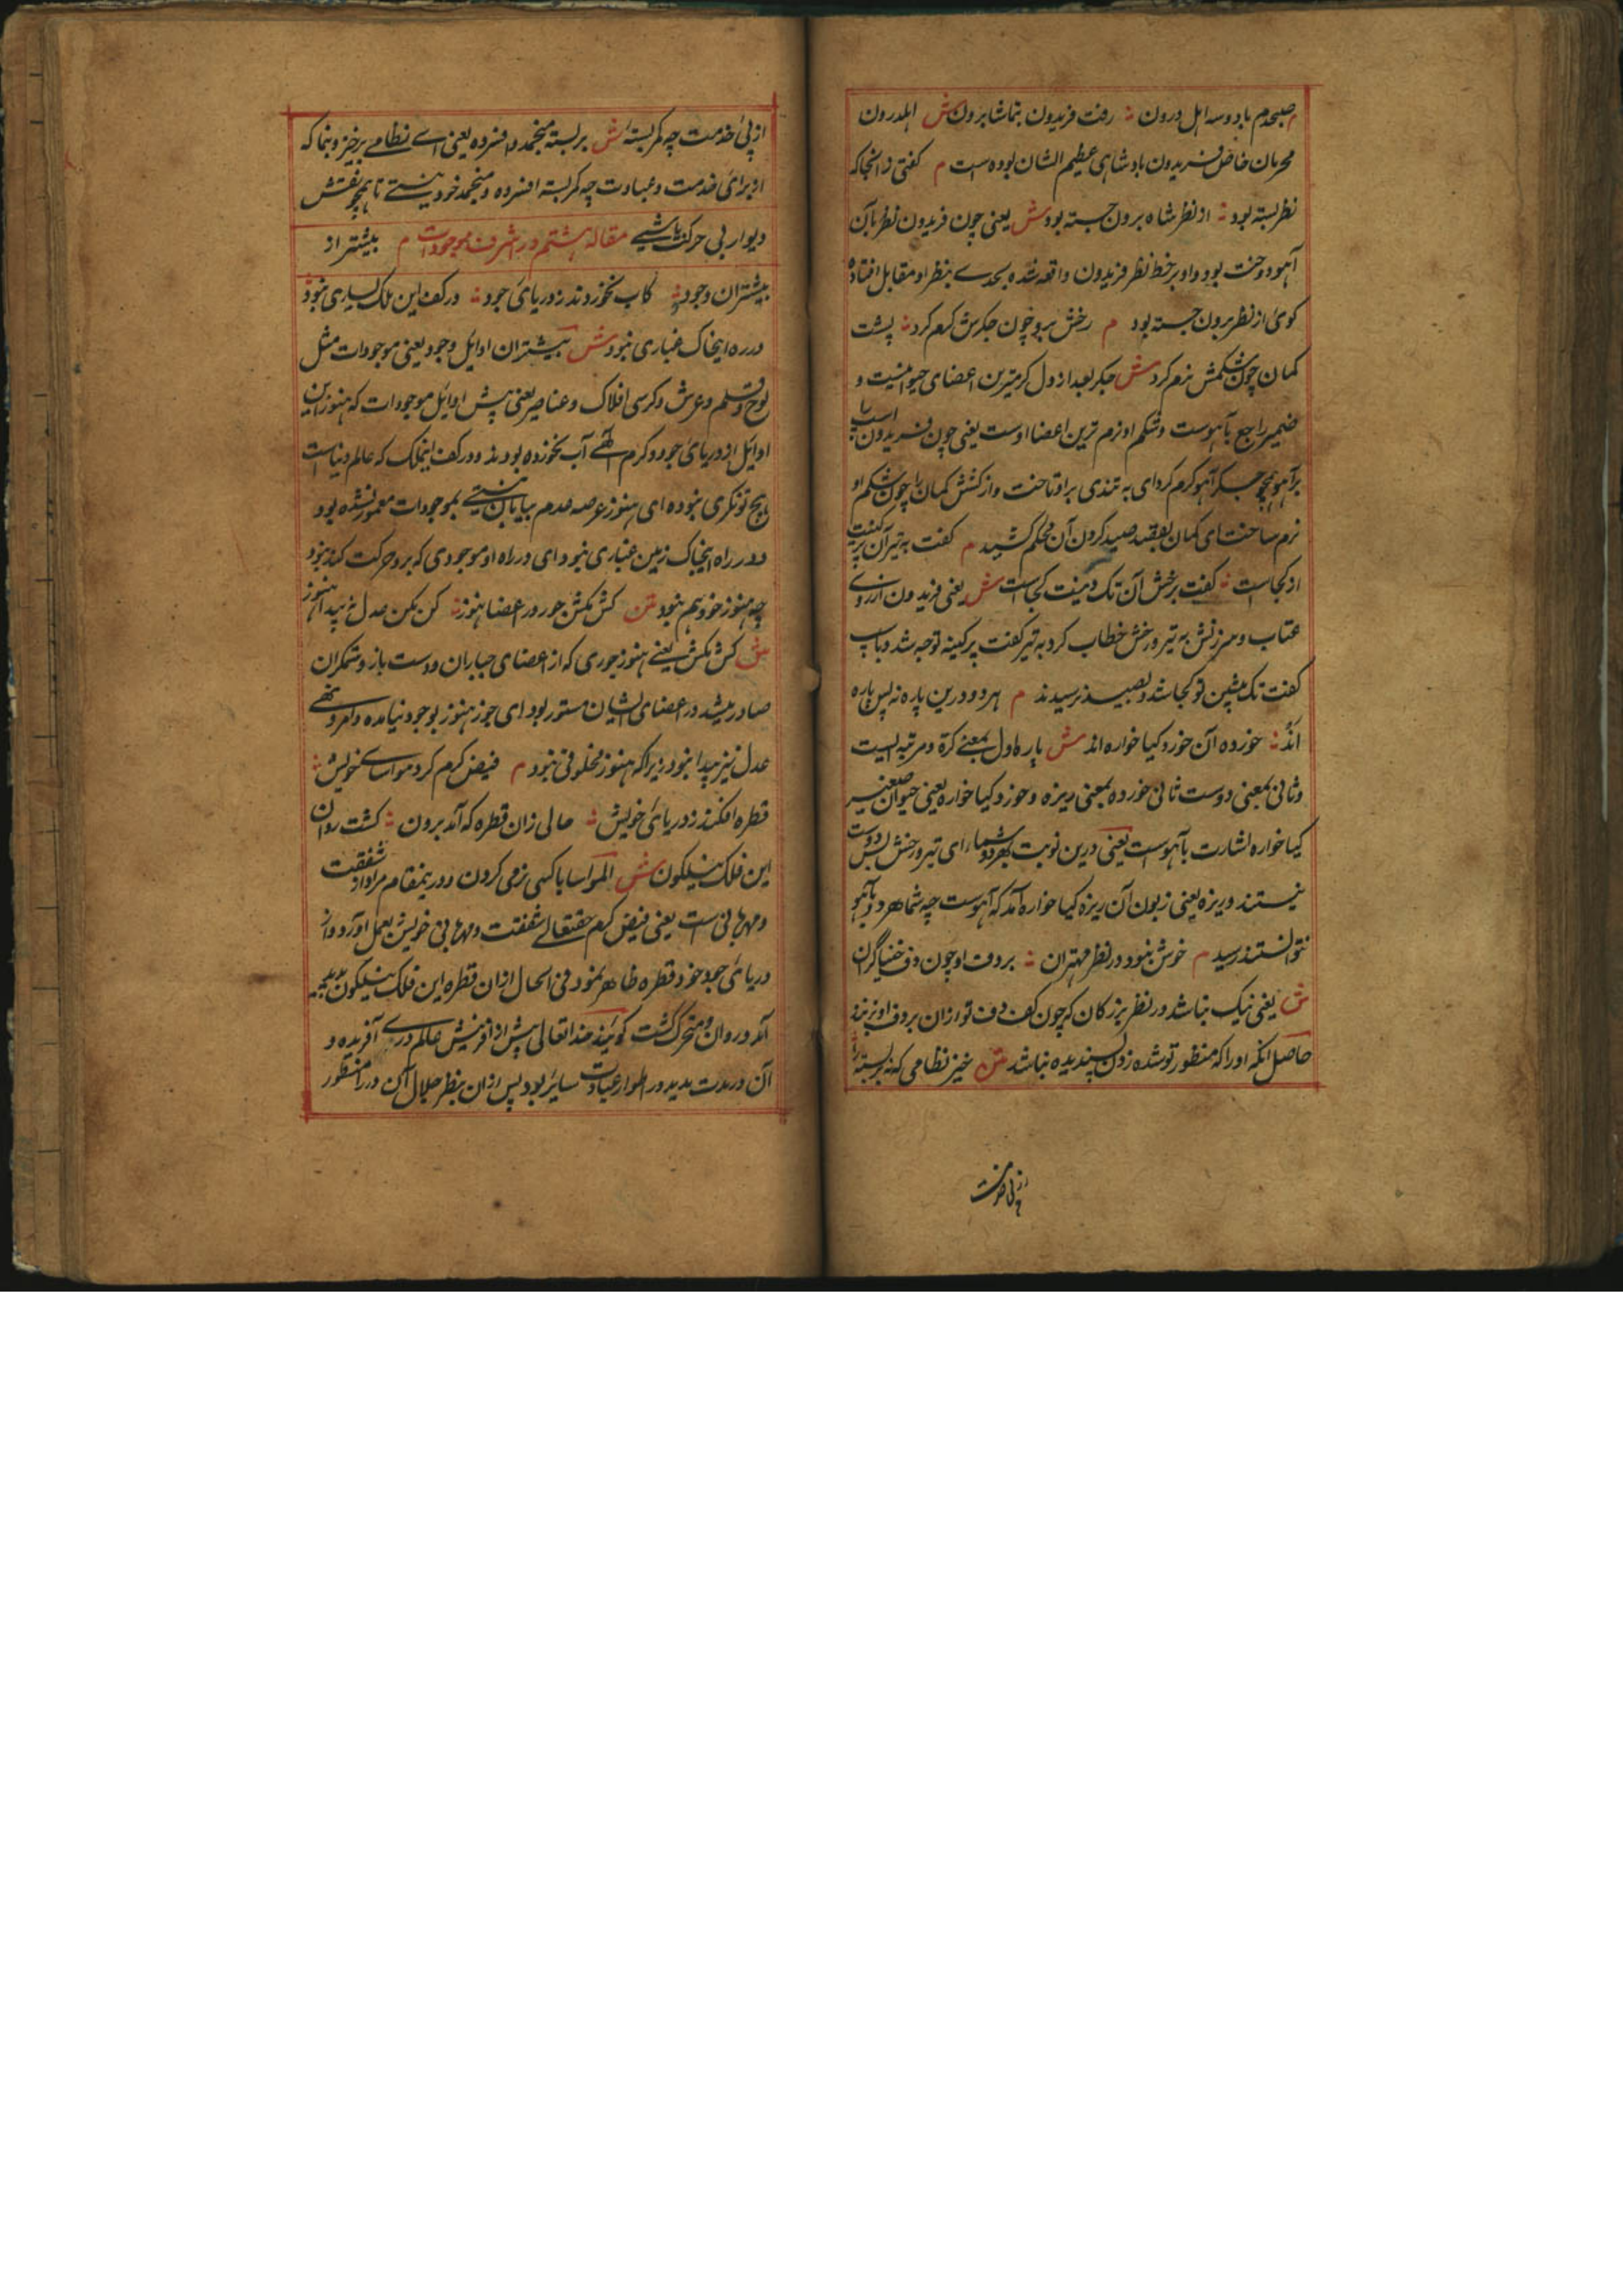 م صبحدم با دو سه اهل درون ؞ رفت فریدون بتماشا برون ش اهلدرون
محرمان خاص فریدون بادشاهی عظیم الشان بوده است م گفتی زانجاکه
نظر بسته بود ؞ از نظر شاه برون جسته بود ش یعنی چون فریدون نظر بآن
آهو دوخت بود و او بر خط نظر فریدون واقع شده بحدے بنظر او مقابل افتاده
کوی از نظر برون جسته بود م رخش برو چون جکرش کرم کرد ؞ پشت
کمان چون شکمش نرم کرد ش جکر بعد از دل کرمترین اعضای حیوانیست و
ضمیر راجع بآهوست و شکم او نرم ترین اعضا اوست یعنی چون فریدون اسپ را
بر آهو همچو جکر آهو کرم کرد ای به تندی براو تاخت و از کشش کمان را چون شکم او
نرم ساخت ای کمان بقصد صید کردن آن محکم کشید م کفت به تیر آن پر کینت
از کجاست ؞ کفت برخش آن تک دینت کجاست ش یعنی فریدون از روی
عتاب و سرزنش به تیر و رخش خطاب کرد به تیر کفت پر کینه توجه شد و باسپ
کفت تک پیشین تو کجا شد و بصید نرسیدند م هر دو درین پاره نه پس پاره
اند ؞ خورده آن خورد کیا خواره اند ش پاره اول بمعنے کرة و مرتبه ایست
و ثانی بمعنی دوست ثانی خورده بمعنی ریزه و خورد کیا خواره یعنی حیوان صغیر
کیا خواره اشارت بآهوست یعنی درین نوبت هر دو شما ای تیر و رخش پس دوست
نیستند و ریزه یعنی زبون آن ریزه کیا خواره آمد که آهوست چه شما هر دو بآهو
نتوانستند رسید م خوش نبود در نظر مهتران ؞ بر دف او چون دف خنیاکران
ش یعنی نیک نباشد در نظر بزرکان که چون کف دف تو ازان بر دف او نزنند
حاصل انکه او را که منظور تو شده زدن پسندیده نباشد متن خیز نظامی که نه بربسته ؞
از پی خدمت
از پی خدمت چه کمر بسته ش بربسته منجمد و افسرده یعنی اے نظامے برخیز و بنما که
از برای خدمت و عبادت چه کمر بسته افسرده و منجمد خود نیستے تا همچو نقش
دیوار بی حرکت باشے مقاله هشتم در اشرف موجودات م پیشتر از
پیشتران وجود ؞ کاب نخوردند ز دریای جود ؞ در کف این ملک یساری نبود
در ره اینخاک غباری نبود ش پیشتران اوایل وجود یعنی موجودات مثل
لوح و قلم و عرش و کرسی افلاک و عناصر یعنی پیش اوایل موجودات که هنوز این
اوایل از دریای جود و کرم الٰهے آب نخورده بودند و در کف اینملک که عالم دنیاست
هیچ تونکری نبوده ای هنوز عرصه عدم بیابان نیستے بموجودات معمور نشده بود
و در راه اینخاک زمین غباری نبود ای در راه او موجودی که برو حرکت کند نبود
چه هنوز خود هم نبود متن کش مکش جور در اعضا هنوز ؞ کن مکن عدل نه پیدا هنوز
ش کش مکش یعنے هنوز جوری که از اعضای جباران و دست باز و ستمکران
صادر میشد در اعضای ایشان مستور بود ای جور هنوز بوجود نیامده و امر و نهے
عدل نیز پیدا نبود زیرا که هنوز مخلوقی نبود م فیض کرم کرد مواساے خویش ؞
قطره افکند ز دریای خویش ؞ حالی زان قطره که آمد برون ؞ کشت روان
این فلک نیلکون ش المواسا با کسی نرمی کردن و درینمقام مراد از شفقت
و مهربانی است یعنی فیض کرم حقتعالے شفقت و مهربانی خویش بعمل آورد و از
دریای جود خود قطره ظاهر نمود فی الحال ازان قطره این فلک نیلکون پدید
آمد و روان و متحرک کشت کویند خدایتعالی پیش از آفرینش عالم درے آفریده و
آن در مدت مدید در اطوار عبادت سایر بود پس ازان بنظر جلال آن در را منظور